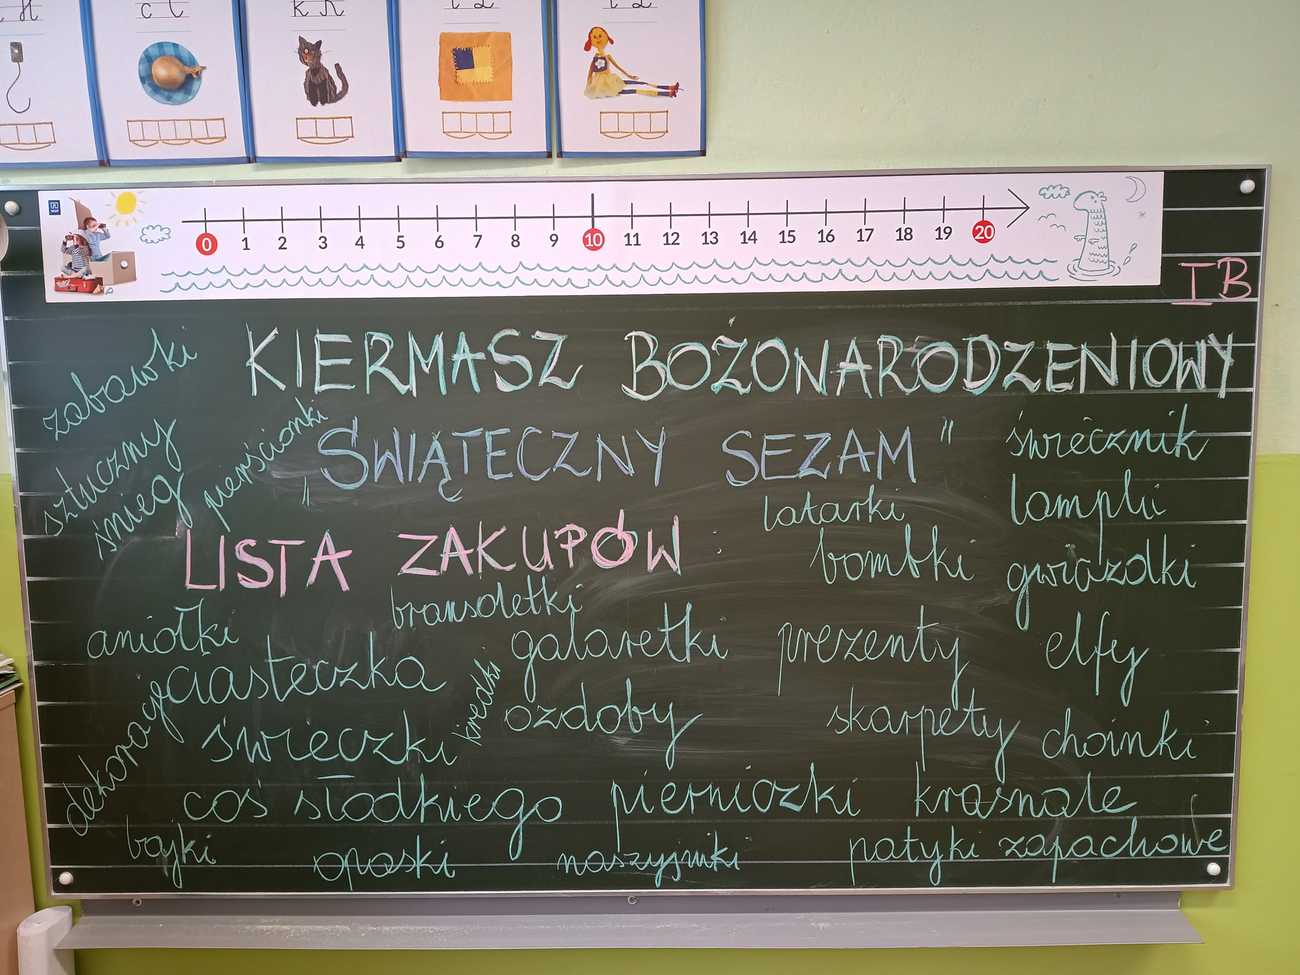 K K
0 1 2 3 4 5 6 7 8 9 10 11 12 13 14 15 16 17 18 19 20
I B
KIERMASZ BOŻONARODZENIOWY
„ŚWIĄTECZNY SEZAM”
zabawki
sztuczny
śnieg
pierścionki
świecznik
latarki
lampki
LISTA ZAKUPÓW
bombki
gwiazdki
bransoletki
aniołki
galaretki
prezenty
elfy
ciasteczka
kredki
ozdoby
skarpety
choinki
dekoracje
świeczki
coś słodkiego
pierniczki
krasnale
bajki
opaski
naszyjniki
patyki zapachowe